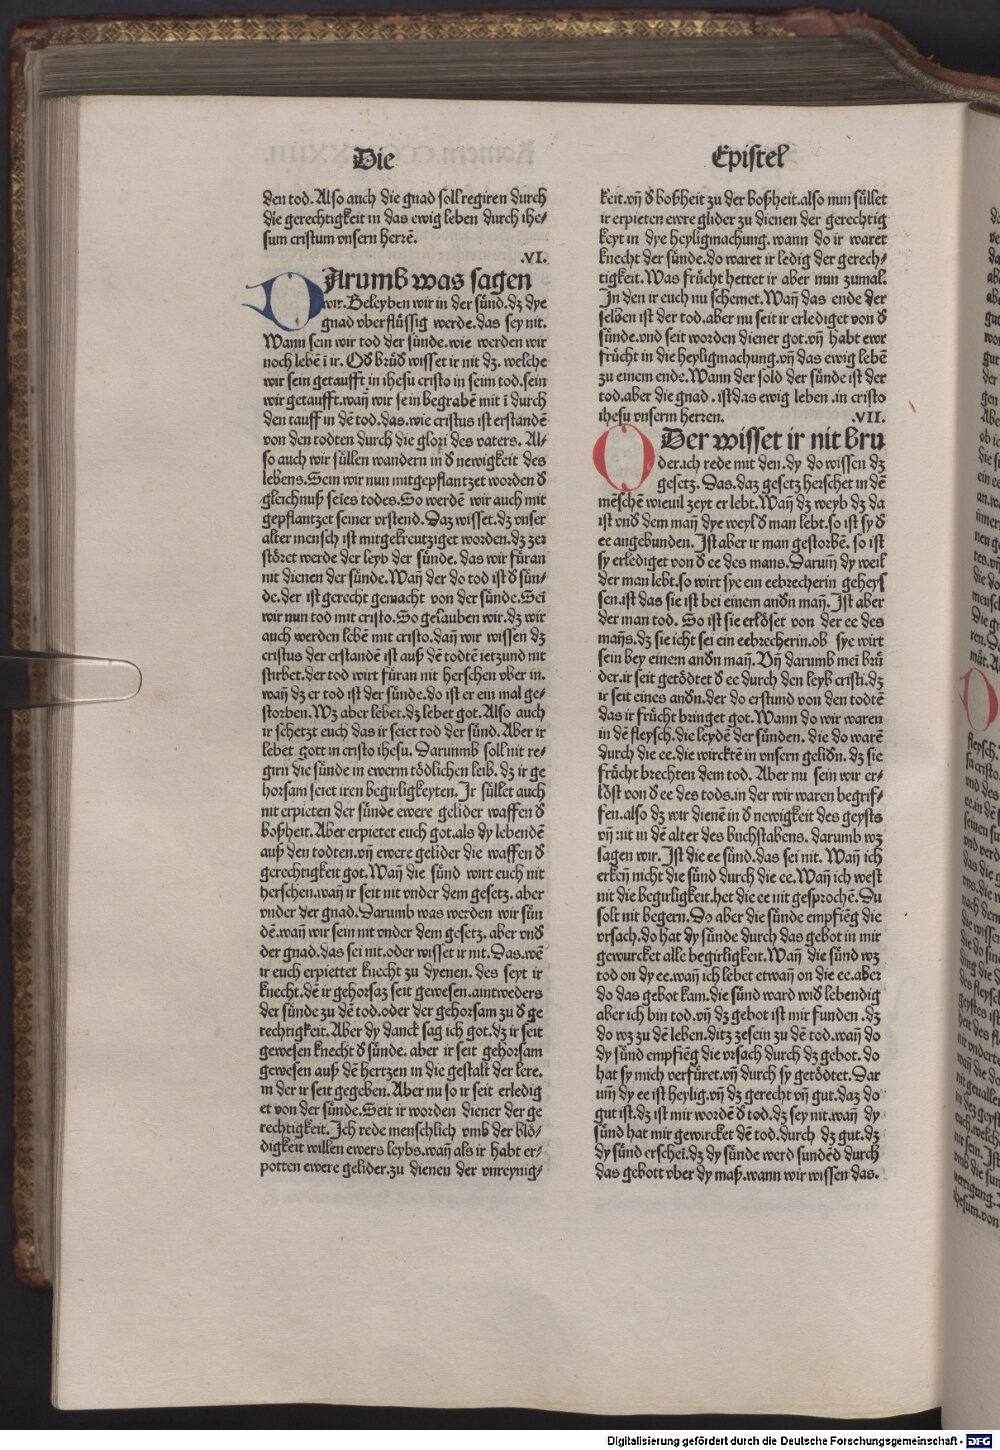 Die
Epistel
den tod. Also auch die gnad soll regiren durch
die gerechtigkeit in das ewig leben durch ihe-
sum cristum vnsern herrē.
.VI.
DArumb was sagen
wir. Beleyben wir in der sünd. dz dye
gnad vberflüssig werde. das sey nit.
Wann sein wir tod der sünde. wie werden wir
noch lebē ī ir. Od̕ brüd̕ wisset ir nit dz. welche
wir sein getaufft in ihesu cristo in seim tod. sein
wir getaufft. wañ wir sein begrabē mit ī durch
den tauff in dē tod. das. wie cristus ist erstandē
von den todten durch die glori des vaters. Al-
so auch wir süllen wandern in d̕ newigkeit des
lebens. Sein wir nun mitgepflantzet worden d̕
gleichnuß seīes todes. So werdē wir auch mit
gepflantzet seiner vrstend. Daz wisset. dz vnser
alter mensch ist mitgekreutziget worden. dz zer
störet werde der leyb der sünde. das wir füran
nit dienen der sünde. Wañ der do tod ist d̕ sün-
de. der ist gerecht gemacht von der sünde. Sei
wir nun tod mit cristo. So gelauben wir. dz wir
auch werden lebē mit cristo. dañ wir wissen dz
cristus der erstandē ist auß dē todtē ietzund nit
stirbet. der tod wirt füran nit herschen vber in.
wañ dz er tod ist der sünde. do ist er ein mal ge-
storben. Wz aber lebet. dz lebet got. Also auch
ir schetzt euch das ir seiet tod der sünd. Aber ir
lebet gott in cristo ihesu. Darumb soll nit re-
girn die sünde in ewerm tödlichen leib. dz ir ge
horsam seiet iren begirligkeyten. Ir süllet auch
nit erpieten der sünde ewere gelider waffen d̕
boßheit. Aber erpietet euch got. als dy lebendē
auß den todten. vñ ewere gelider die waffen d̕
gerechtigkeit got. Wañ die sünd wirt euch nit
herschen. wañ ir seit nit vnder dem gesetz. aber
vnder der gnad. Darumb was werden wir sün
dē. wañ wir sein nit vnder dem gesetz. aber vnd̕
der gnad. das sei nit. oder wisset ir nit. Das. wē
ir euch erpiettet knecht zu dyenen. des seyt ir
knecht. dē ir gehorsaz seit gewesen. aintweders
der sünde zu dē tod. oder der gehorsam zu d̕ ge
rechtigkeit. Aber dy danck sag ich got. dz ir seit
gewesen knecht d̕ sünde. aber ir seit gehorsam
gewesen auß dē hertzen in die gestalt der lere.
in der ir seit gegeben. Aber nu so ir seit erledig
et von der sünde. Seit ir worden diener der ge
rechtigkeit. Ich rede menschlich vmb der blö-
digkeit willen ewers leybs. wañ als ir habt er-
potten ewere gelider. zu dienen der vnreynig-
keit. vñ d̕ boßheit zu der boßheit. also nun süllet
ir erpieten ewre glider zu dienen der gerechtig
keyt in dye heyligmachung. wann do ir waret
knecht der sünde. do waret ir ledig der gerech-
tigkeit. Was frücht hettet ir aber nun zumal.
In den ir euch nu schemet. Wañ das ende der
selben ist der tod. aber nu seit ir erlediget von d̕
sünde. vnd seit worden diener got. vñ habt ewr
frücht in die heyligmachung. vñ das ewig lebē
zu einem ende. Wann der sold der sünde ist der
tod. aber die gnad. ist das ewig leben. in cristo
ihesu vnserm herren.
.VII.
ODer wisset ir nit bru
der. ich rede mit den. dy do wissen dz
gesetz. Das. daz gesetz herschet in dē
mēschē wieuil zeyt er lebt. Wañ dz weyb dz da
ist vnd̕ dem mañ dye weyl d̕ man lebt. so ist sy d̕
ee angebunden. Ist aber ir man gestorbē. so ist
sy erlediget von d̕ ee des mans. Darum̃ dy weil
der man lebt. so wirt sye ein eebrecherin geheys
sen. ist das sie ist bei einem and̕n mañ. Ist aber
der man tod. So ist sie erlöset von der ee des
mañs. dz sie icht sei ein eebrecherin. ob sye wirt
sein bey einem and̕n mañ. Vñ darumb mei brü
der. ir seit getödtet d̕ ee durch den leyb cristi. dz
ir seit eines and̕n. der do erstund von den todtē
das ir frücht bringet got. Wann do wir waren
in dē fleysch. die leydē der sünden. die do warē
durch die ee. die wircktē in vnsern gelid̕n. dz sie
frücht brechten dem tod. Aber nu sein wir er-
löst von d̕ ee des tods. in der wir waren begrif-
fen. also dz wir dienē in d̕ newigkeit des geysts
vñ nit in dē alter des buchstabens. darumb wz
sagen wir. Ist die ee sünd. das sei nit. Wañ ich
erkeñ nicht die sünd durch die ee. Wañ ich west
nit die begirligkeit. het die ee nit gesprochē. Du
solt nit begern. Do aber die sünde empfieng die
vrsach. do hat dy sünde durch das gebot in mir
gewurcket alle begirligkeit. Wañ die sünd wz
tod on dy ee. wañ ich lebet etwañ on die ee. aber
do das gebot kam. die sünd ward wid̕ lebendig
aber ich bin tod. vñ dz gebot ist mir funden. dz
do wz zu dē leben. ditz zesein zu dē tod. wañ do
dy sünd empfieng die vrsach durch dz gebot. do
hat sy mich verfüret. vñ durch sy getödtet. Dar
um̃ dy ee ist heylig. vñ dz gerecht vñ gut. daz do
gut ist. dz ist mir wordē d̕ tod. dz sey nit. wañ dy
sünd hat mir gewircket dē tod. durch dz gut. dz
dy sünd erschei. dz dy sünde werd sundēd durch
das gebott vber dy maß. wann wir wissen das.
Digitalisierung gefördert durch die Deutsche Forschungsgemeinschaft - DFG